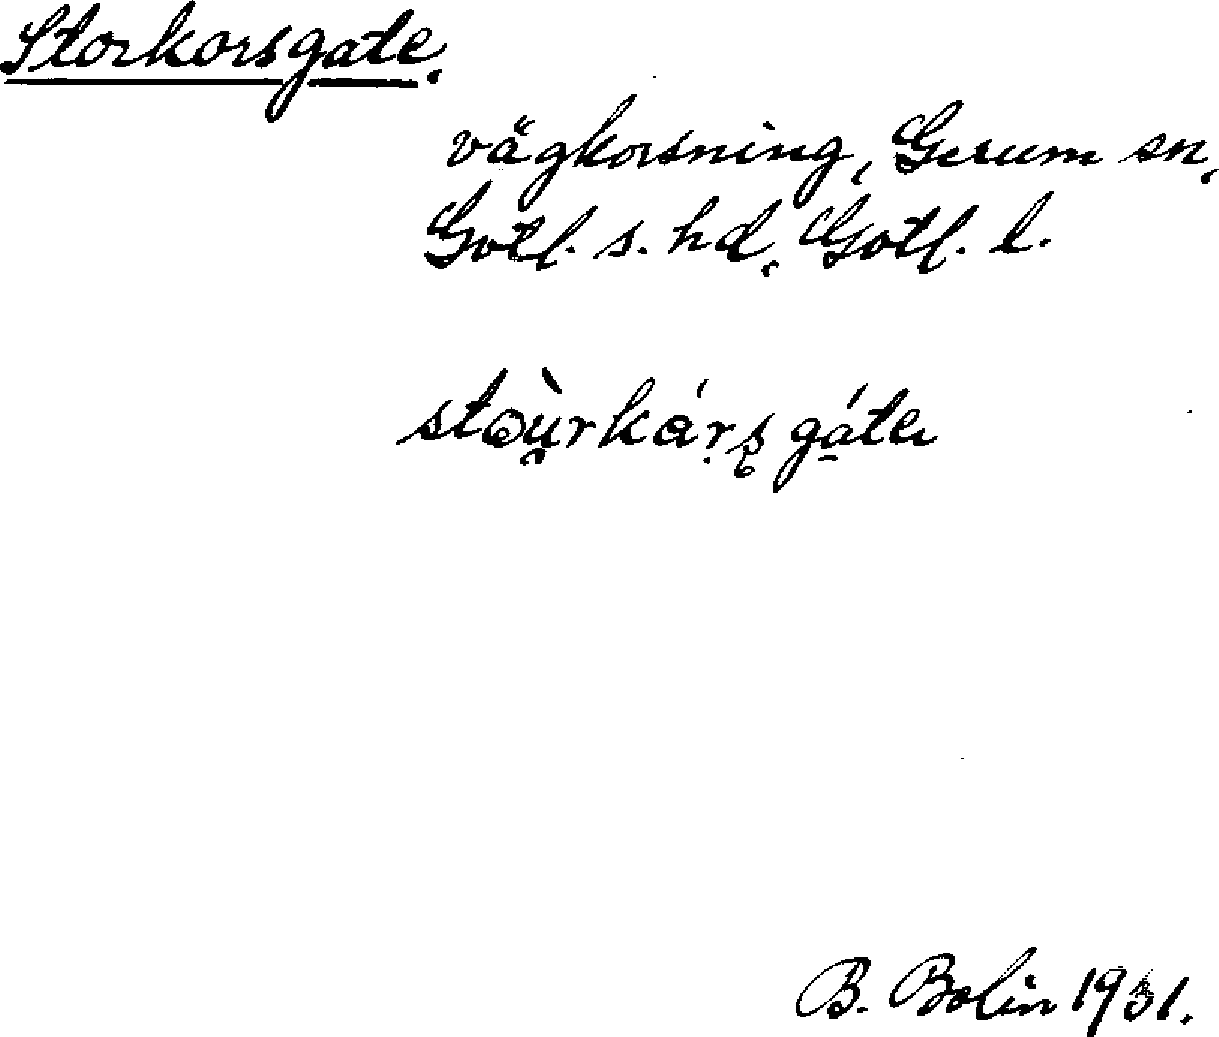 Storkorsgate.
vägkorsning, Gerum sn,
Gotl. s. hd, Gotl. l.
B. Bolin 1931.